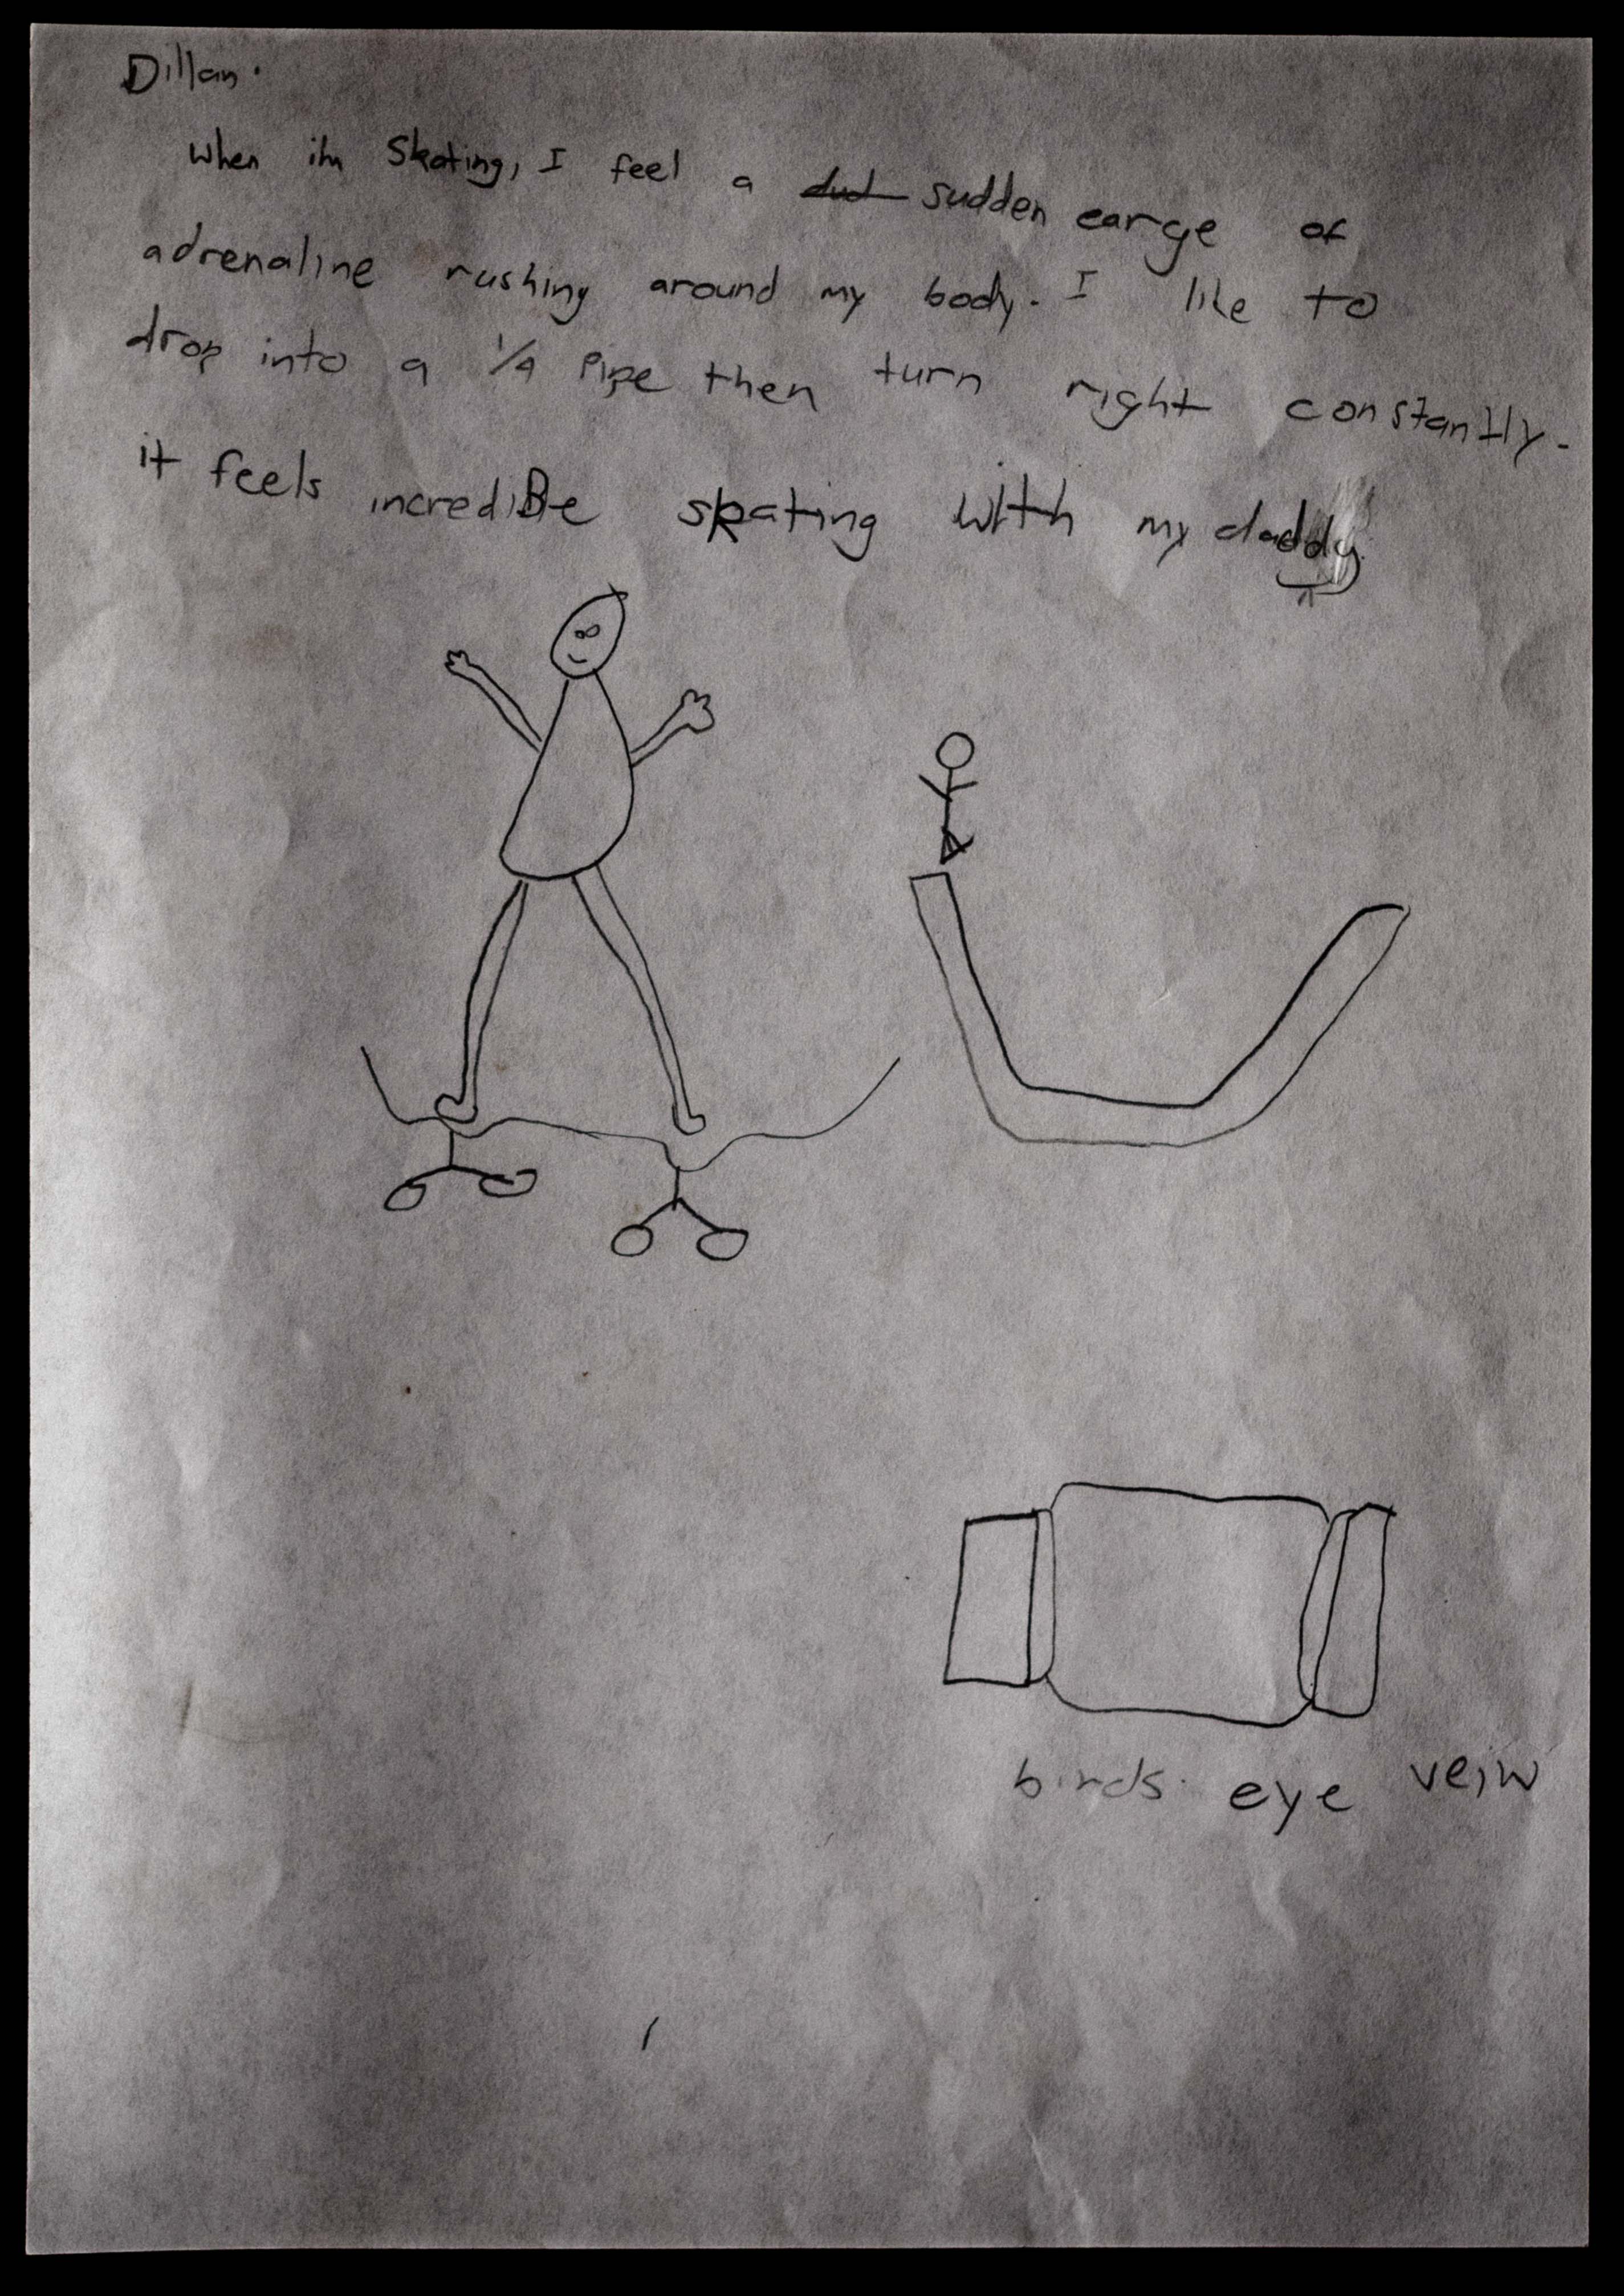 Dillan.
When im Skating, I feel a sudden earge of
adrenaline rushing around my body. I like to
drop into a 1/4 Pipe then turn right constantly.
it feels incrediBle skating with my daddy.
birds eye veiw